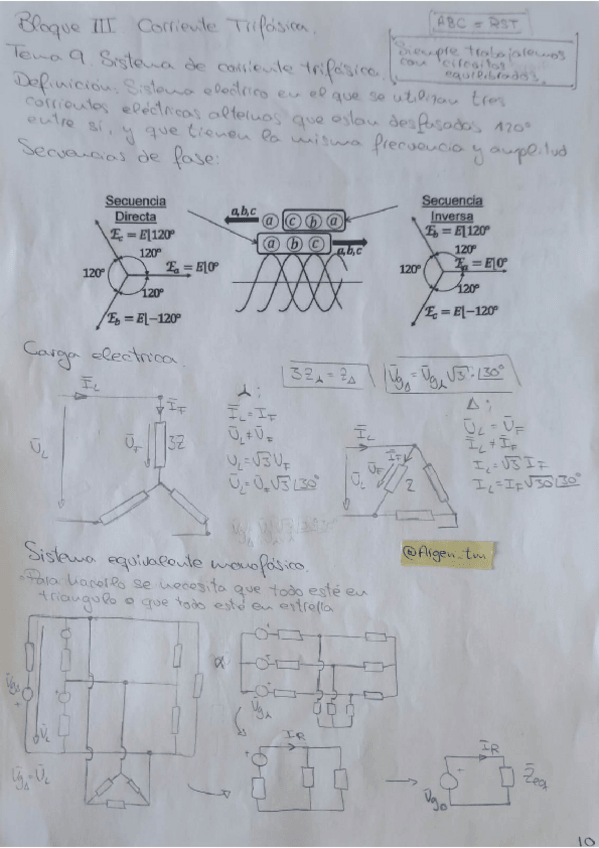 Bloque III. Corriente Trifásica.
ABC = RST
Siempre trabajaremos
con circuitos
equilibrados.
Tema 9. Sistema de corriente trifásica.
Definición: Sistema electrico en el que se utilizan tres
corrientes eléctricas alternas que estan desfasadas 120°
entre sí, y que tienen la misma frecuencia y amplitud
Secuencias de fase:
Secuencia
Directa
a,b,c
a c b a
a b c
a,b,c
Secuencia
Inversa
E_c = E⌊120°
120°
120°
E_a = E⌊0°
120°
E_b = E⌊-120°
E_b = E⌊120°
120°
120°
E_a = E⌊0°
120°
E_c = E⌊-120°
Carga electrica.
3Z⅄ = Z∆
Ūg∆ = Ūg⅄ √3 · ⌊30°
Ī_L
Ī_F
Ū_L
Ū_F
3Z
⅄ ;
Ī_L = Ī_F
Ū_L ≠ Ū_F
U_L = √3 U_F
Ū_L = Ū_F √3 ⌊30°
Ī_L
Ī_F
Ū_F
Ū_L
Z
∆ ;
Ū_L = Ū_F
Ī_L ≠ Ī_F
I_L = √3 I_F
I_L = I_F √30 ⌊30°
@Argen_tm
Sistema equivalente monofásico.
Para hacerlo se necesita que todo esté en
triangulo o que todo esté en estrella
Ūg∆
Ū_L
Ūg∆ = Ū_L
α
Ūg⅄
Ī_R
Ī_R
Ūg₀
Z̄eq
10